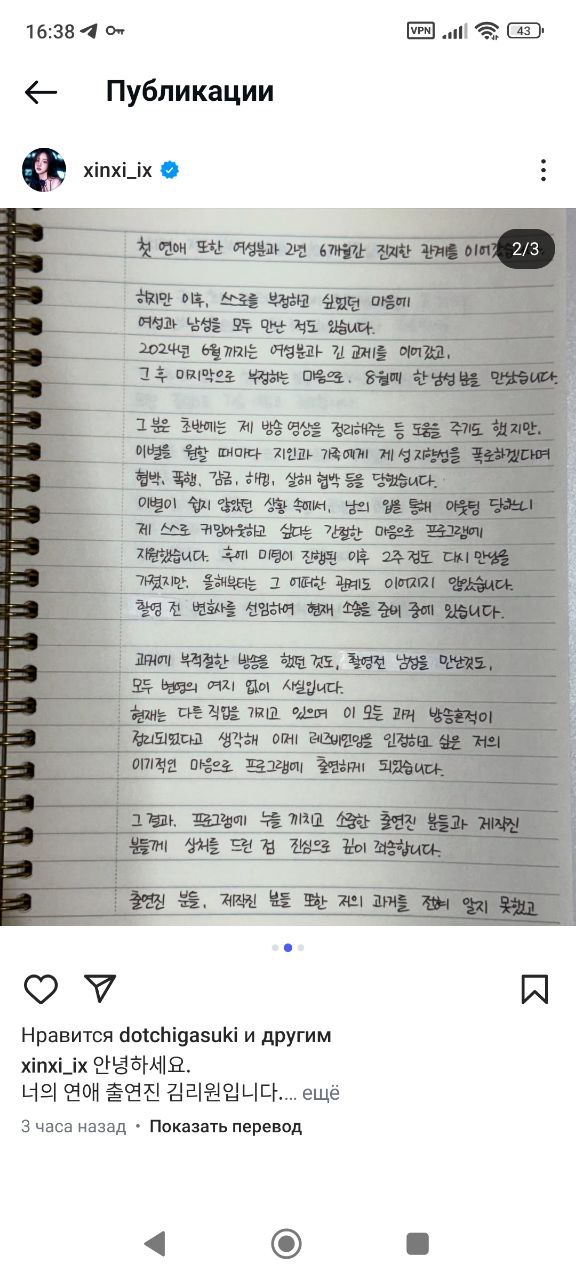 16:38
VPN
43
Публикации
xinxi_ix
2/3
첫 연애 또한 여성분과 2년 6개월간 진지한 관계를 이어갔
하지만 이후, 스스로를 부정하고 싶었던 마음에
여성과 남성을 모두 만난 적도 있습니다.
2024년 6월까지는 여성분과 긴 교제를 이어갔고,
그 후 마지막으로 부정하는 마음으로. 8월에 한 남성분을 만났습니다.
그 분은 초반에는 제 방송 영상을 정리해주는 등 도움을 주기도 했지만.
이별을 원할 때마다 지인과 가족에게 제 성지향성을 폭로하겠다며
협박, 폭행, 감금, 해킹, 살해 협박 등을 당했습니다.
이별이 쉽지 않았던 상황 속에서, 남의 입을 통해 아웃팅 당하느니
제 스스로 커밍아웃하고 싶다는 간절한 마음으로 프로그램에
지원했습니다. 후에 미팅이 진행된 이후 2주 정도 다시 만남을
가졌지만. 올해부터는 그 어떠한 관계도 이어지지 않았습니다.
촬영 전 변호사를 선임하여 현재 소송을 준비 중에 있습니다.
과거에 부적절한 방송을 했던 것도, 촬영전 남성을 만난것도,
모두 변명의 여지 없이 사실입니다.
현재는 다른 직업을 가지고 있으며 이 모든 과거 방송흔적이
정리되었다고 생각해 이제 레즈비언임을 인정하고 싶은 저의
이기적인 마음으로 프로그램에 출연하게 되었습니다.
그 결과. 프로그램에 누를 끼치고 소중한 출연진 분들과 제작진
분들께 상처를 드린 점 진심으로 깊이 죄송합니다.
출연진 분들, 제작진 분들 또한 저의 과거를 전혀 알지 못했고
Нравится dotchigasuki и другим
xinxi_ix 안녕하세요.
너의 연애 출연진 김리원입니다.... ещё
3 часа назад • Показать перевод